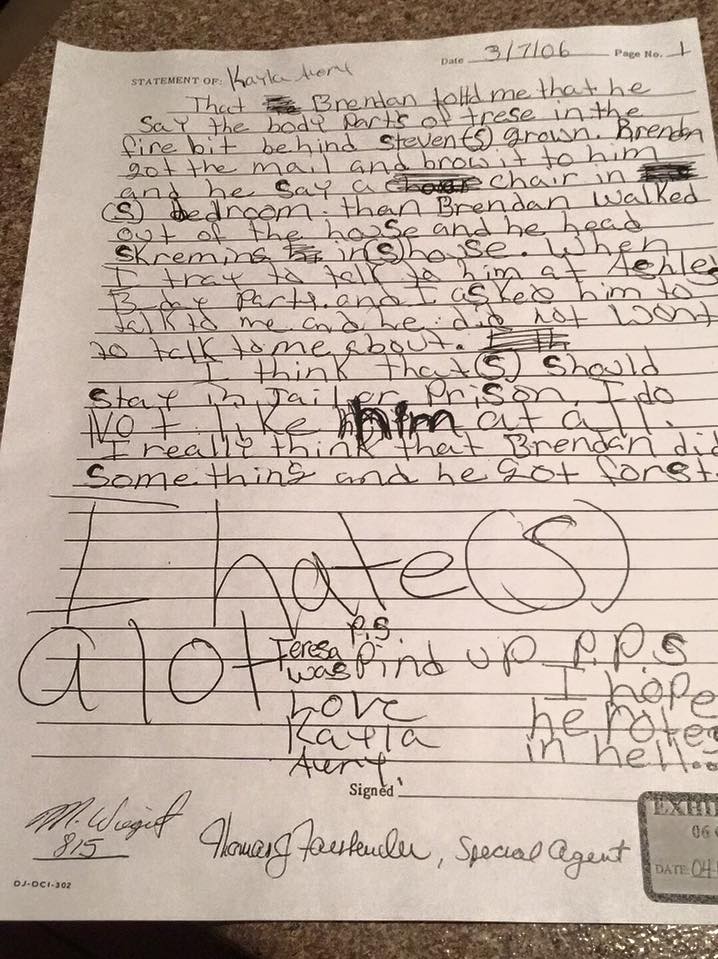 Date 3/7/06 Page No. 1
STATEMENT OF: Kayla Avery
That Brendan tolld me that he
Say the body parts of trese in the
fire bit behind Steven(S) grown. Brendan
got the mail and brow it to him
and he say a chair in
(S) bedroom. than Brendan walked
out of the house and he head
Skreming in (S) house. When
I tray to talk to him at Ashley
B-day party. and I asked him to
talk to me and he did not Want
to talk to me about.
I think that (S) Should
Stay in Jail or Prison. I do
Not like him at all.
I really think that Brendan did
Something and he got forst.
I hate (S)
alot
P.S
Teresa was Pind up P.P.S
I hope
he rotes
in hell...
Love
Kayla
Avery
Signed
M. Wiegert
815
Thomas J Fassbender, Special Agent
EXHI
06
DATE: 04
DJ-DCI-302